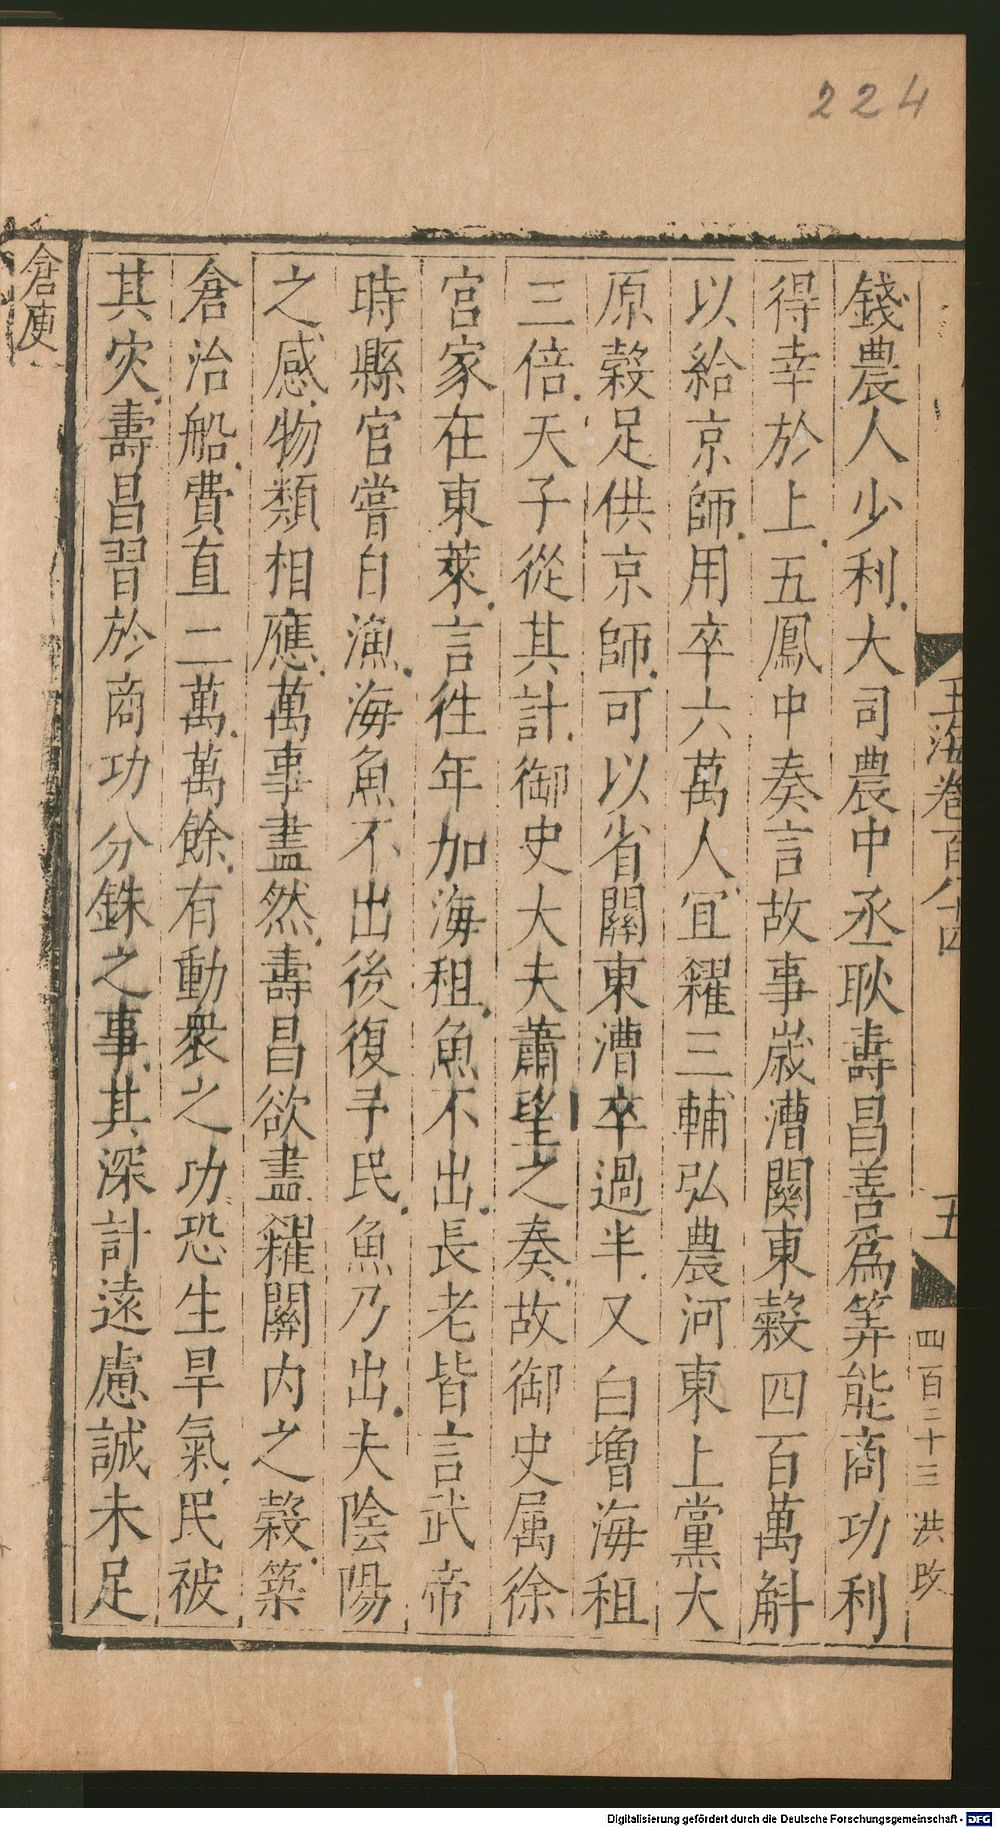 224
玉海卷百八十四
五
四百二十三
洪攺
錢農人少利大司農中丞耿壽昌善爲筭能商功利
得幸於上五鳳中奏言故事嵗漕關東穀四百萬斛
以給京師用卒六萬人宜糴三輔弘農河東上黨大
原穀足供京師可以省關東漕卒過半又白增海租
三倍天子從其計御史大夫蕭望之奏故御史属徐
宮家在東萊言徃年加海租魚不出長老皆言武帝
時縣官嘗自漁海魚不出後復予民魚乃出夫陰陽
之感物類相應萬事盡然壽昌欲盡糴關内之穀築
倉治船費直二萬萬餘有動衆之功恐生旱氣民被
其灾壽昌習於商功分銖之事其深計遠慮誠未足
倉庾
Digitalisierung gefördert durch die Deutsche Forschungsgemeinschaft - DFG